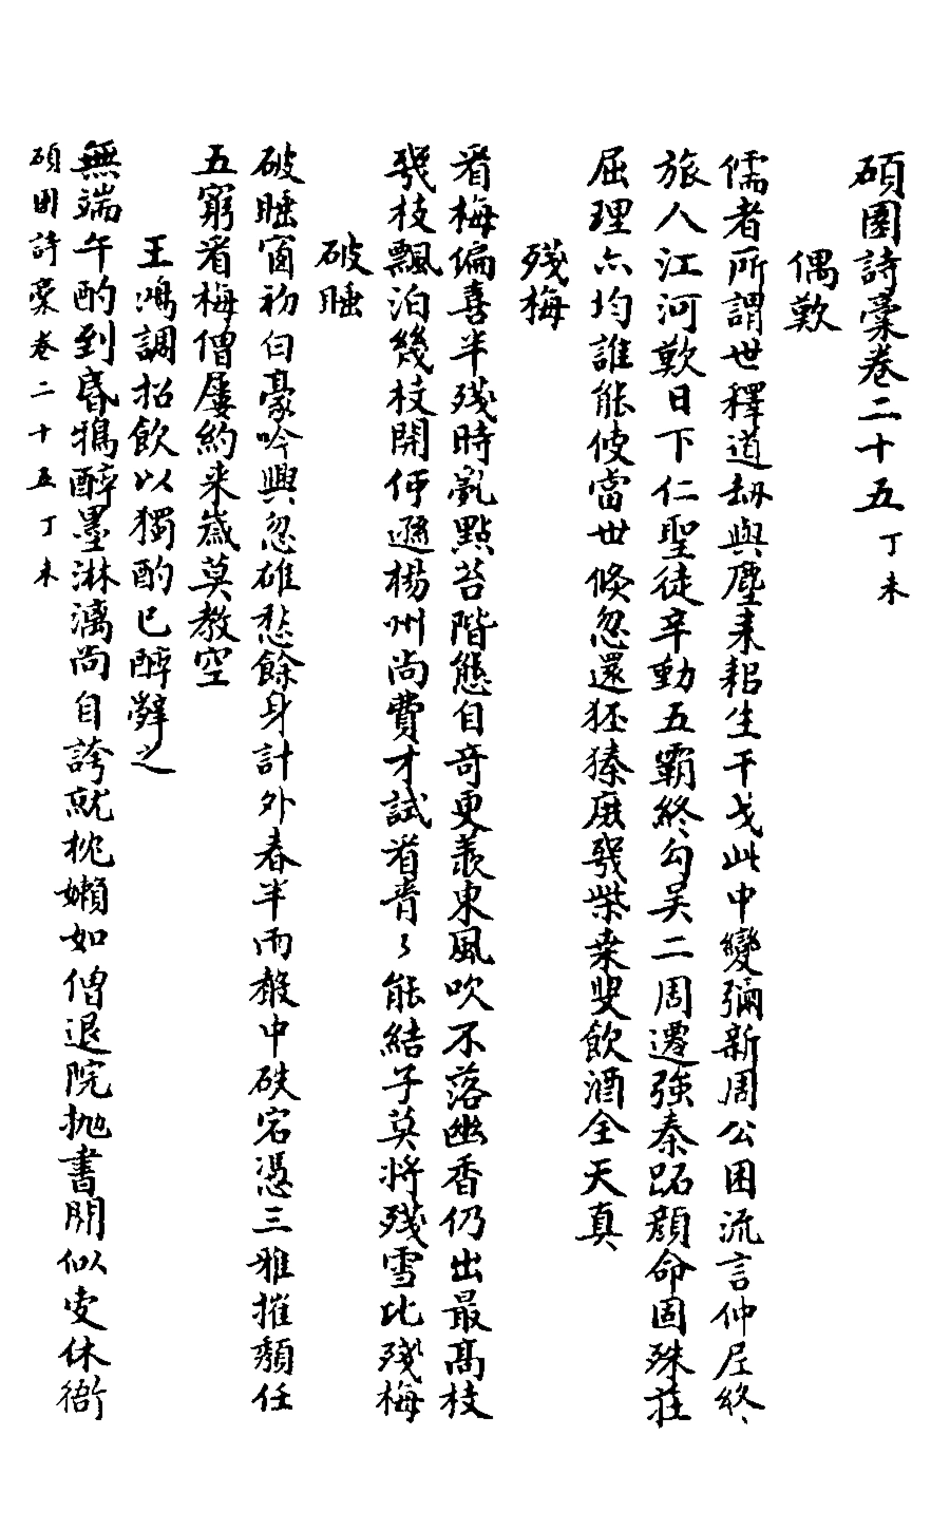 碩園詩稾卷二十五 丁未
偶歎
儒者所謂世釋道劫與塵耒耜生干戈此中變彌新周公困流言仲尼終
旅人江河歎日下仁聖徒辛勤五霸終勾吴二周遷強秦跖顔命固殊莊
屈理亦均誰能使當世倐忽還狉獉庶發柴桑叟飲酒全天真
殘梅
看梅偏喜半殘時亂點苔階態自奇更羨東風吹不落幽香仍出最高枝
幾枝飄泊幾枝開何遜楊州尚費才試看青〻能結子莫將殘雪比殘梅
破睡
破睡窗初白豪吟興忽雄愁餘身計外春半雨聲中砆宕憑三雅摧頽任
五窮看梅僧屢約来嵗莫教空
王鴻調招飲以獨酌已醉辭之
無端午酌到昏鴉醉墨淋漓尚自誇就枕嬾如僧退院抛書閒似吏休衙
碩園詩稾卷二十五 丁未